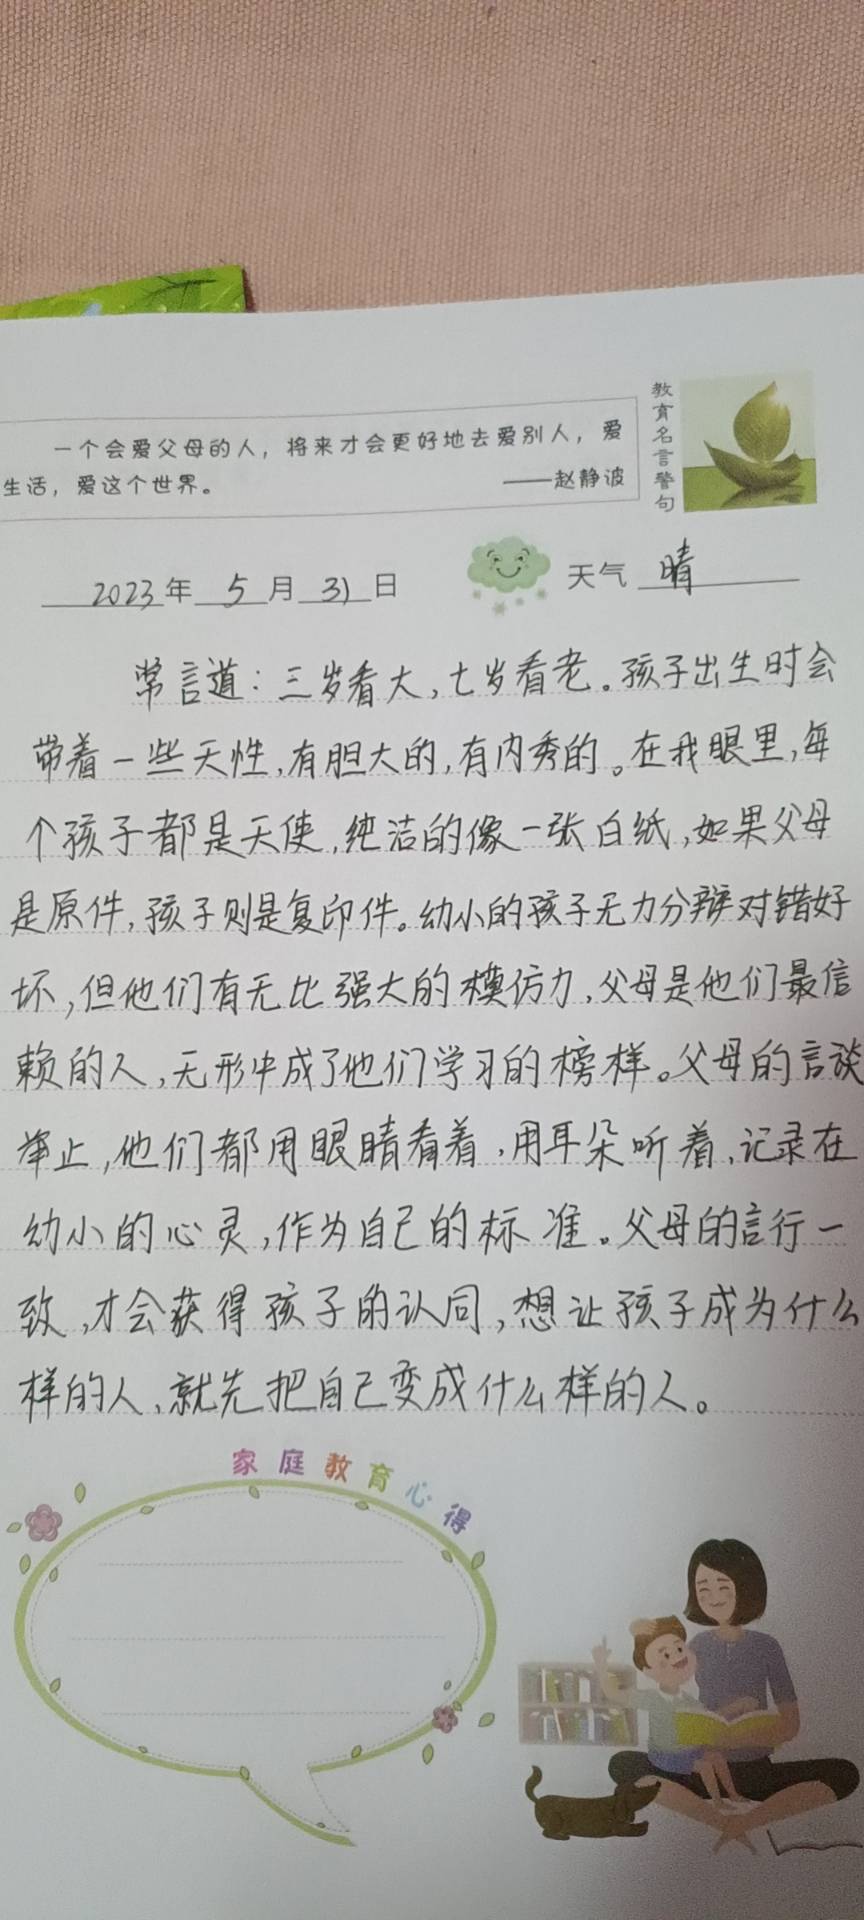 一个会爱父母的人，将来才会更好地去爱别人，爱
生活，爱这个世界。
——赵静波
教育名言警句
2023年 5月 31日
天气 晴
常言道：三岁看大，七岁看老。孩子出生时会
带着一些天性，有胆大的，有内秀的。在我眼里，每
个孩子都是天使，纯洁的像一张白纸，如果父母
是原件，孩子则是复印件。幼小的孩子无力分辩对错好
坏，但他们有无比强大的模仿力，父母是他们最信
赖的人，无形中成了他们学习的榜样。父母的言谈
举止，他们都用眼睛看着，用耳朵听着，记录在
幼小的心灵，作为自己的标准。父母的言行一
致，才会获得孩子的认同，想让孩子成为什么
样的人，就先把自己变成什么样的人。
家庭教育心得